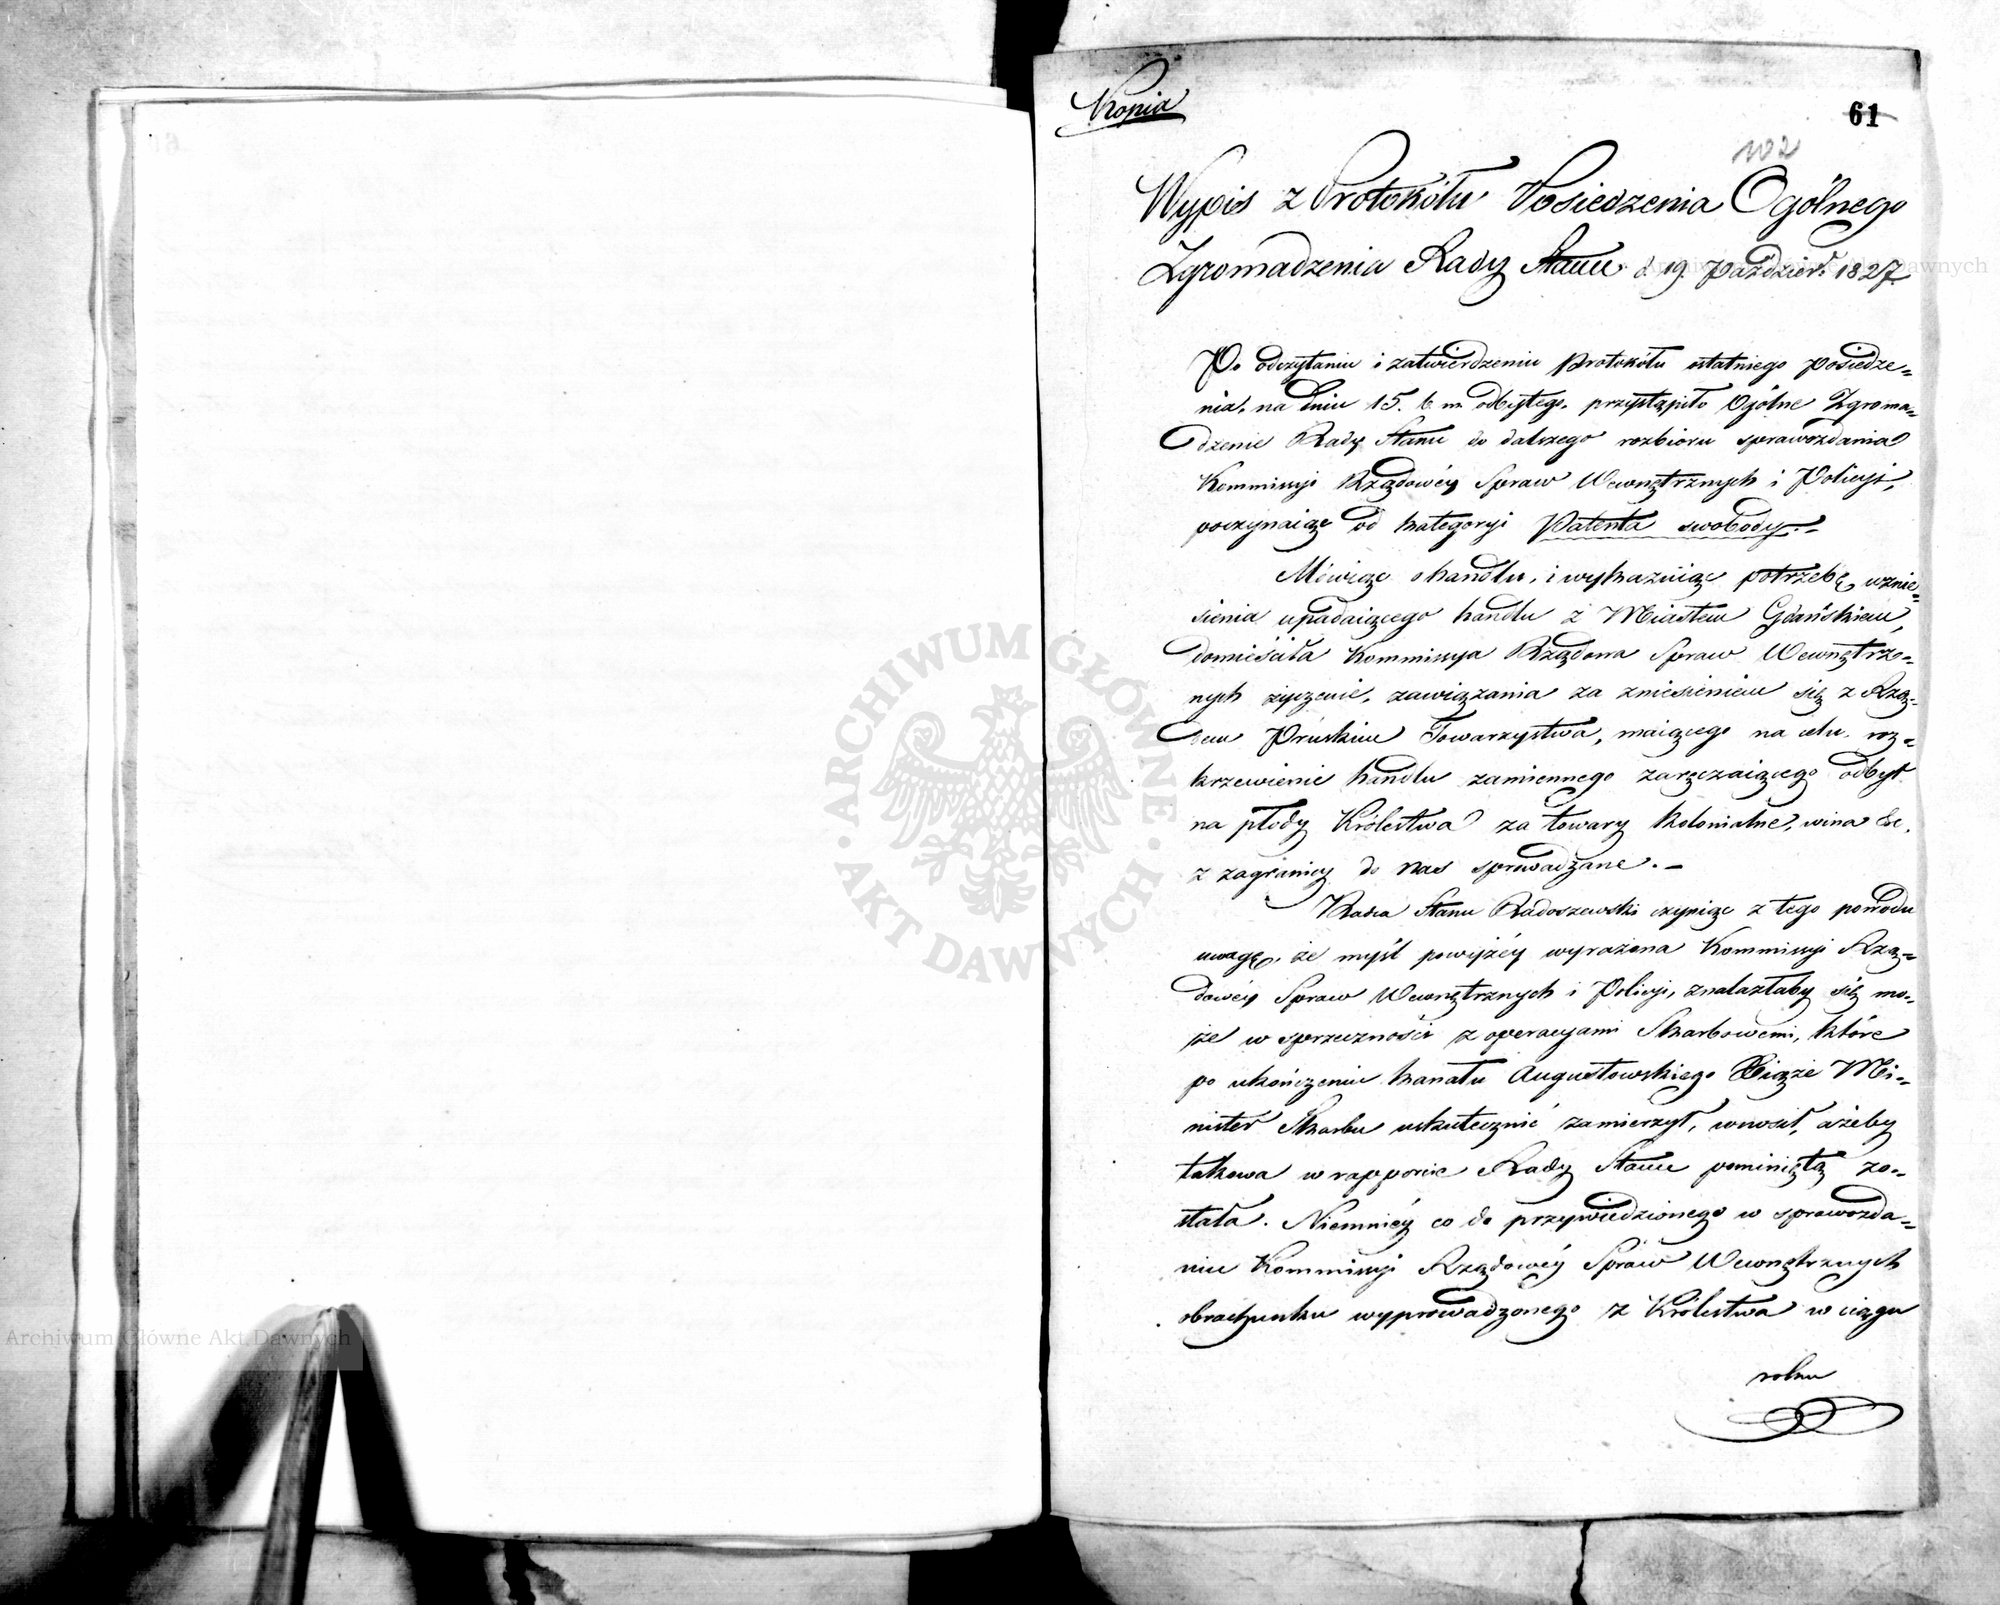 Kopia
61
102
Wypis z Protokółu Posiedzenia Ogólnego
Zgromadzenia Rady Stanu d. 19. Paździer. 1827
Po odczytaniu i zatwierdzeniu Protokółu ostatniego posiedze=
nia, na dniu 15. b. m. odbytego, przystąpiło Ogólne Zgroma=
dzenie Rady Stanu do dalszego rozbioru sprawozdania
Kommissyi Rządowéy Spraw Wewnętrznych i Policyi,
poczynaiąc od kategoryi Patenta swobody.=
Mówiąc o handlu, i wykazuiąc potrzebę wznie=
sienia upadaiącego handlu z Miastem Gdańskiem,
domieściła Kommissya Rządowa Spraw Wewnętrz=
nych życzenie, zawiązania za zniesieniem się z Rzą=
dem Pruskim Towarzystwa, maiącego na celu roz=
krzewienie handlu zamiennego zaręczaiącego odbyt
na płody Królestwa za towary kolonialne, wina &c.
z zagranicy do nas sprowadzane. —
Radca Stanu Radoszewski czyniąc z tego powodu
uwagę, że myśl powyżéy wyrażona Kommissyi Rzą=
dowéy Spraw Wewnętrznych i Policyi, znalazłaby się mo=
że w sprzeczności z operacyami Skarbowemi, które
po ukończeniu kanału Augustowskiego Xiąże Mi=
nister Skarbu uskutecznić zamierzył, wnosił, ażeby
takowa w rapporcie Rady Stanu pominiętą zo=
stała. Niemniéy co do przywiedzionego w sprawozda=
niu Kommissyi Rządowéy Spraw Wewnętrznych
obrachunku wyprowadzonego z Królestwa w ciągu
roku
ARCHIWUM GŁÓWNE AKT DAWNYCH
Archiwum Główne Akt Dawnych
Archiwum Główne Akt Dawnych